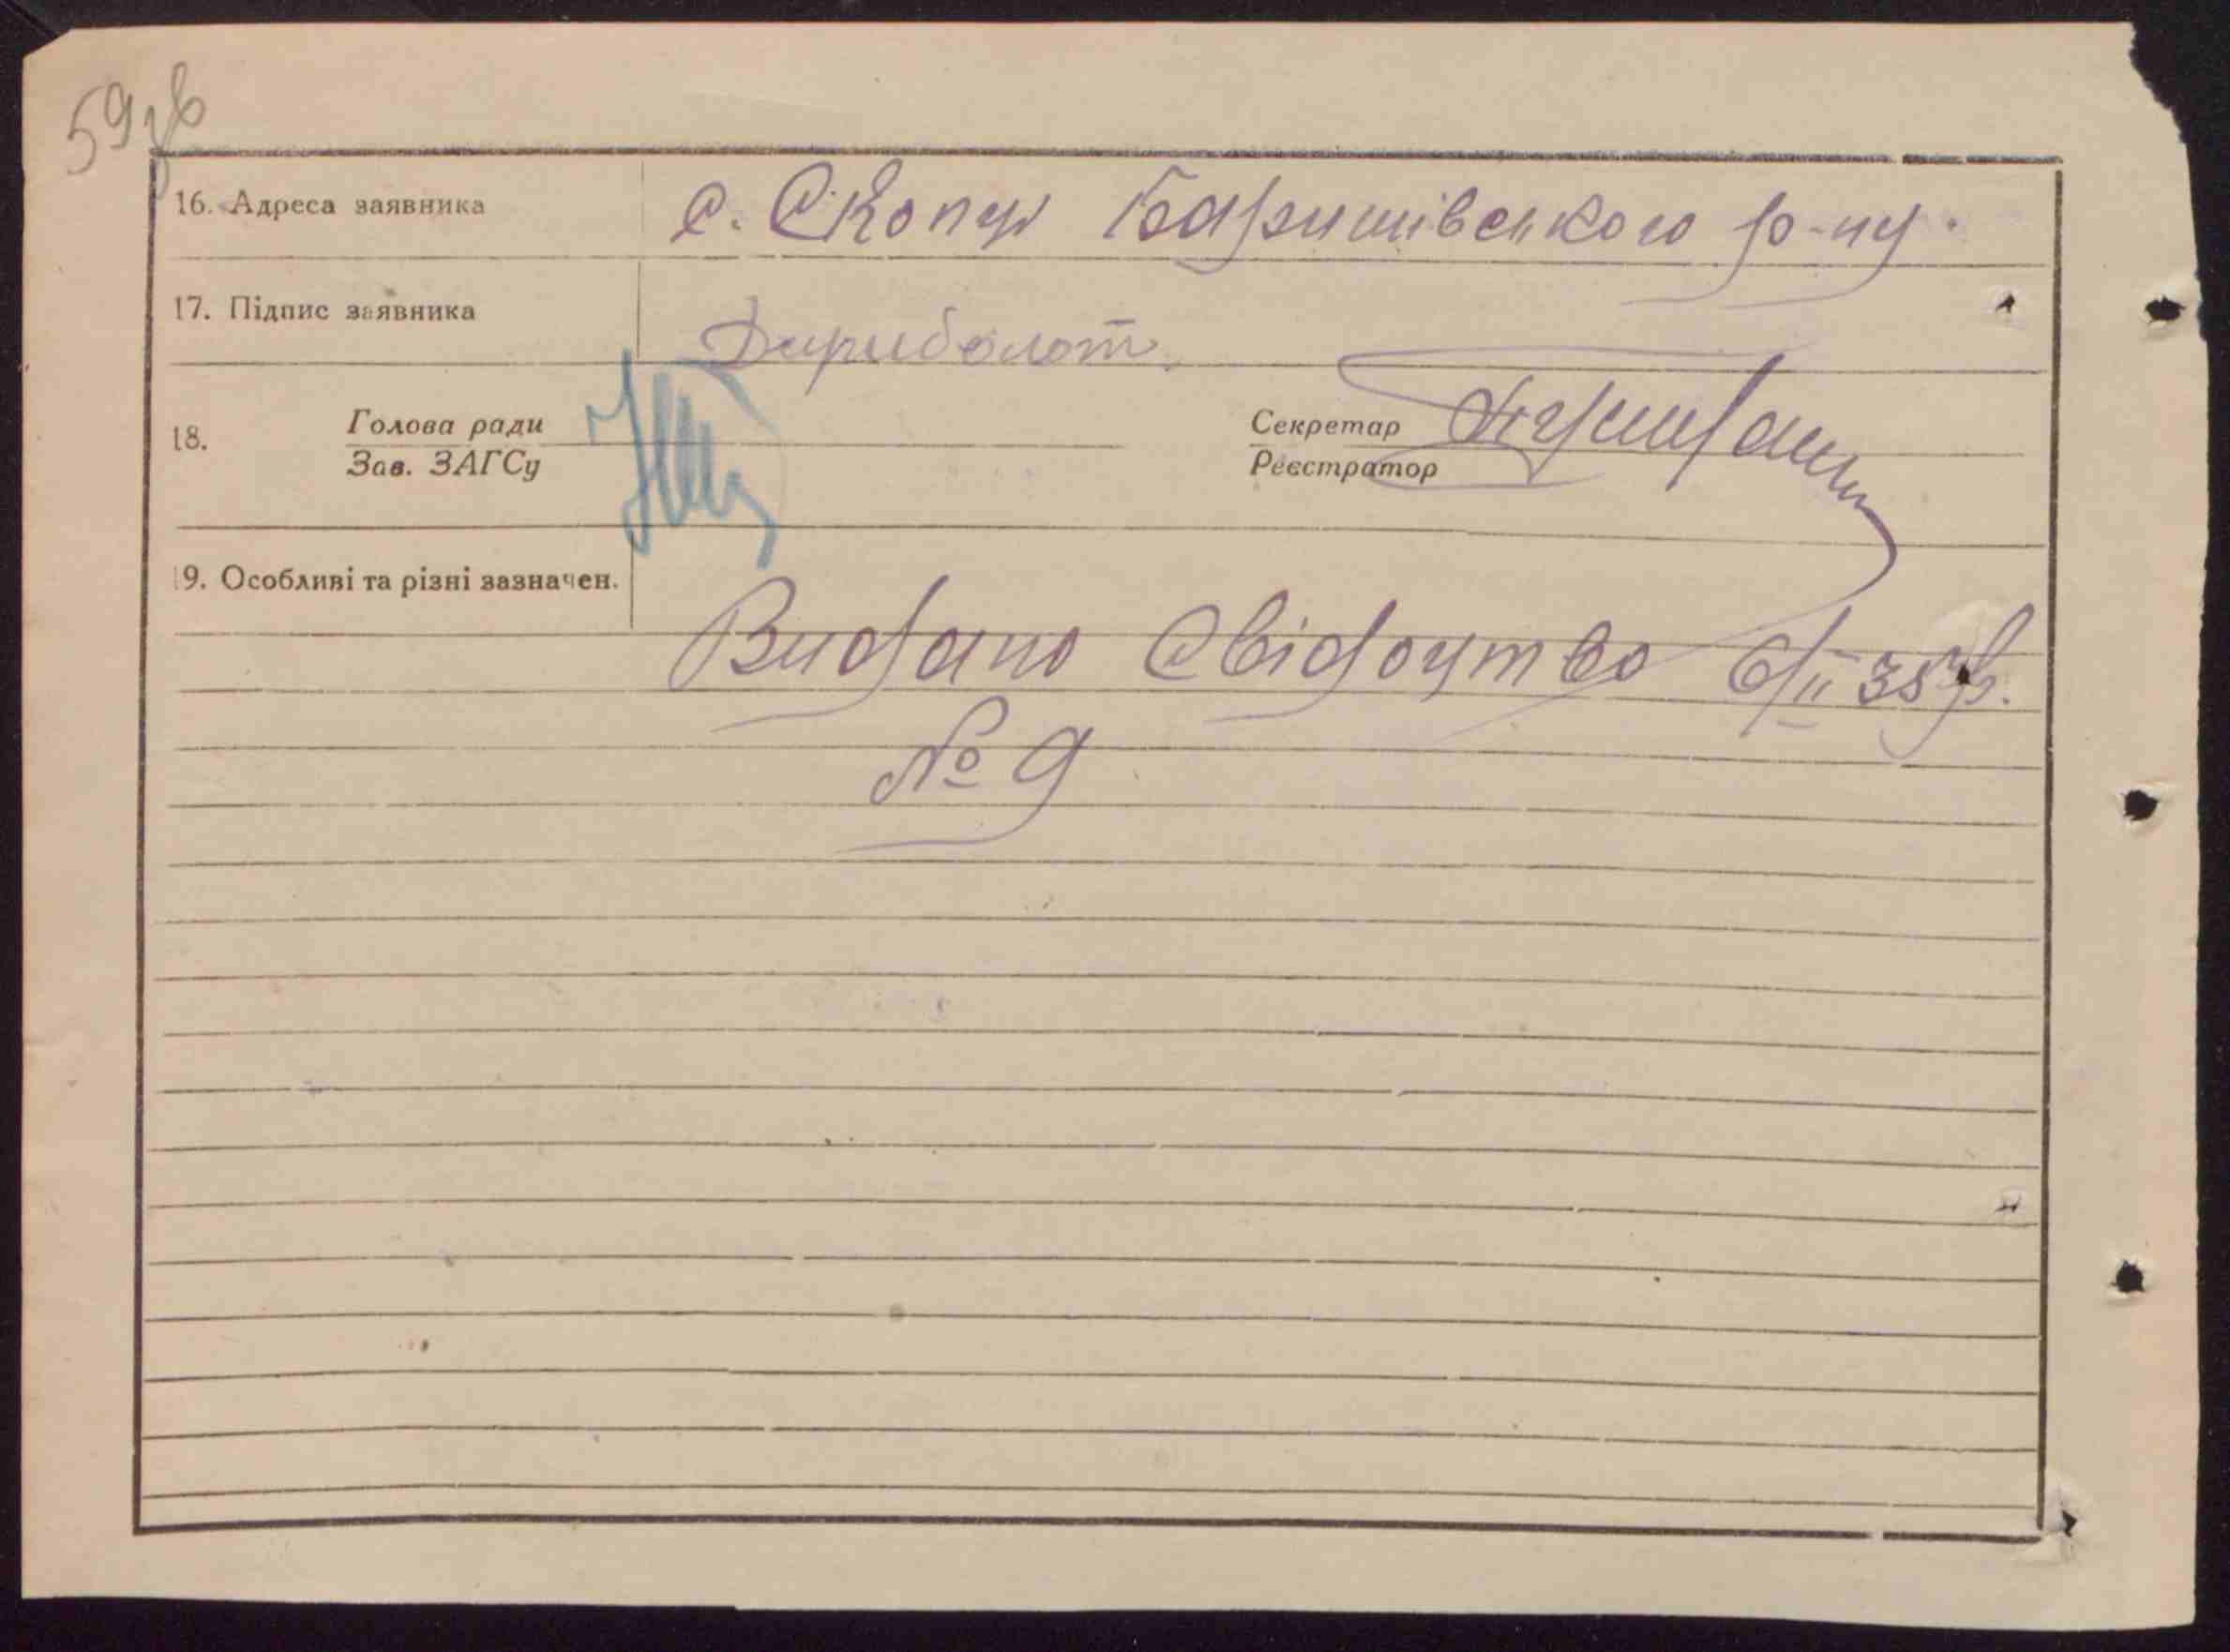 59зв
16. Адреса заявника с. Скопці Баришівського р-ну.
17. Підпис заявника Дириболот
18. Голова ради Секретар
Зав. ЗАГСу Реєстратор
19. Особливі та різні зазначен.
Видано Свідоцтво 6/II 35 р.
№ 9